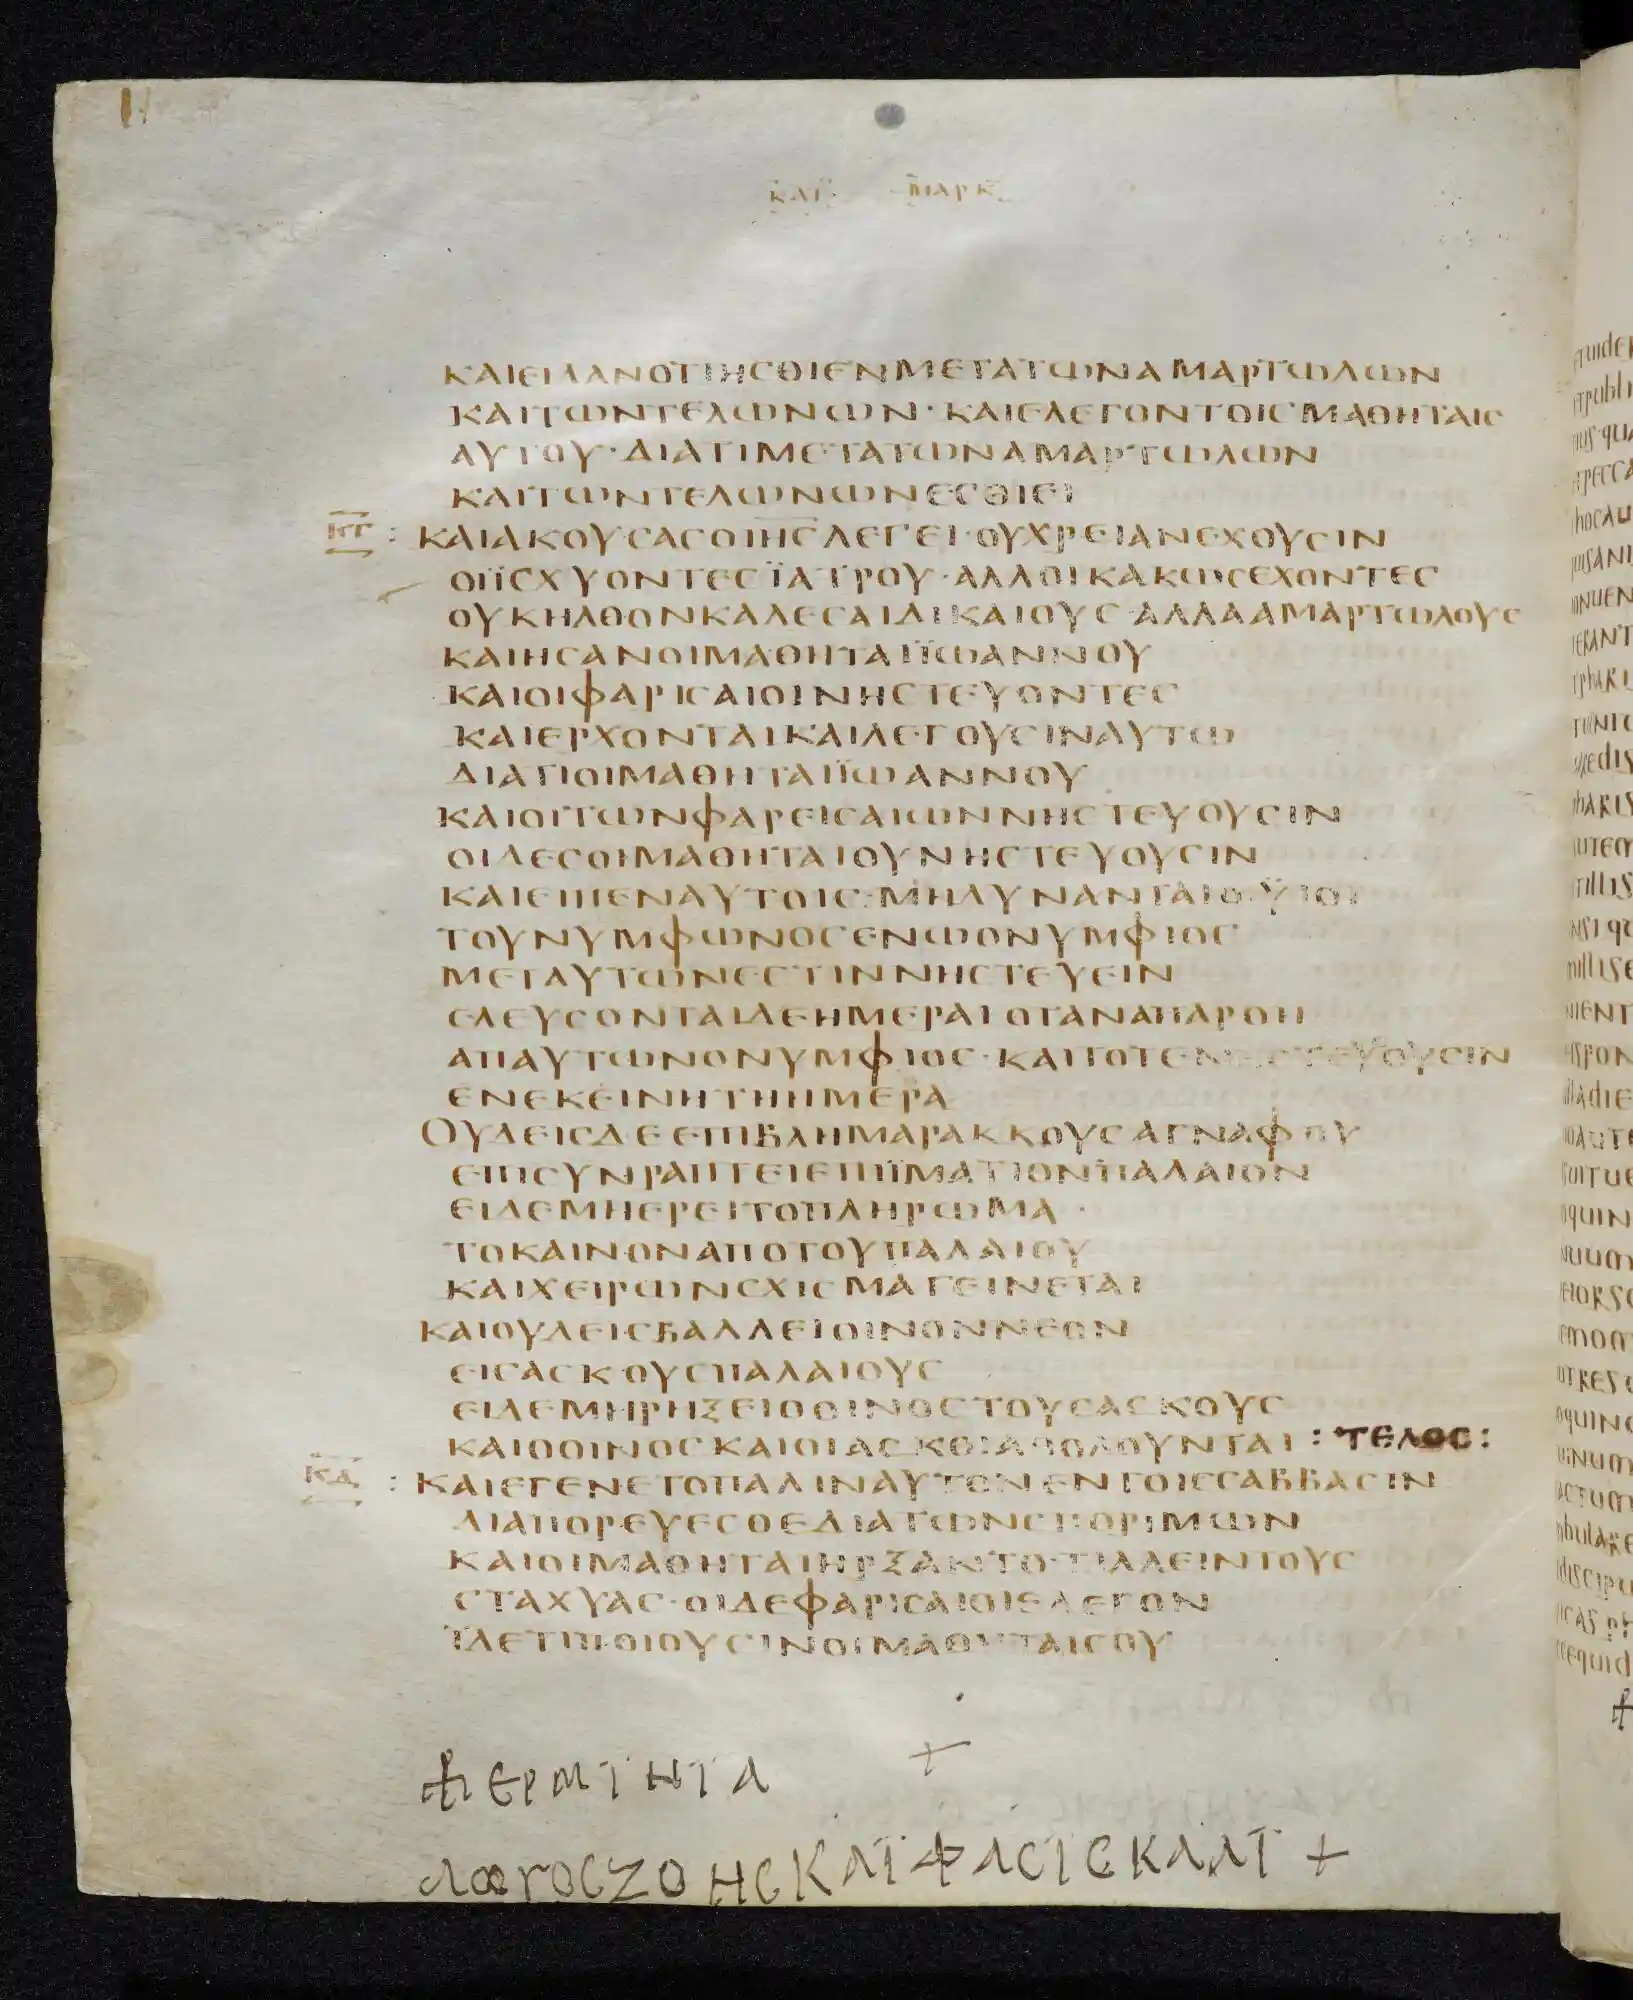 ΚΑΤ ΜΑΡΚ
ΚΑΙΕΙΔΑΝΟΤΙΗΣΘΙΕΝΜΕΤΑΤΩΝΑΜΑΡΤΩΛΩΝ
ΚΑΙΤΩΝΤΕΛΩΝΩΝ· ΚΑΙΕΛΕΓΟΝΤΟΙΣΜΑΘΗΤΑΙΣ
ΑΥΤΟΥ·ΔΙΑΤΙΜΕΤΑΤΩΝΑΜΑΡΤΩΛΩΝ
ΚΑΙΤΩΝΤΕΛΩΝΩΝΕΣΘΙΕΙ
ΚΓ : ΚΑΙΑΚΟΥΣΑΣΟΙΗΣΛΕΓΕΙ·ΟΥΧΡΕΙΑΝΕΧΟΥΣΙΝ
ΟΙΪΣΧΥΟΝΤΕΣΪΑΤΡΟΥ·ΑΛΛΟΙΚΑΚΩΣΕΧΟΝΤΕΣ
ΟΥΚΗΛΘΟΝΚΑΛΕΣΑΙΔΙΚΑΙΟΥΣ·ΑΛΛΑΑΜΑΡΤΩΛΟΥΣ
ΚΑΙΗΣΑΝΟΙΜΑΘΗΤΑΙΪΩΑΝΝΟΥ
ΚΑΙΟΙΦΑΡΙΣΑΙΟΙΝΗΣΤΕΥΟΝΤΕΣ
ΚΑΙΕΡΧΟΝΤΑΙΚΑΙΛΕΓΟΥΣΙΝΑΥΤΩ
ΔΙΑΤΙΟΙΜΑΘΗΤΑΙΪΩΑΝΝΟΥ
ΚΑΙΟΙΤΩΝΦΑΡΕΙΣΑΙΩΝΝΗΣΤΕΥΟΥΣΙΝ
ΟΙΔΕΣΟΙΜΑΘΗΤΑΙΟΥΝΗΣΤΕΥΟΥΣΙΝ
ΚΑΙΕΙΠΕΝΑΥΤΟΙΣ·ΜΗΔΥΝΑΝΤΑΙΟΙΫΙΟΙ
ΤΟΥΝΥΜΦΩΝΟΣΕΝΩΟΝΥΜΦΙΟΣ
ΜΕΤΑΥΤΩΝΕΣΤΙΝΝΗΣΤΕΥΕΙΝ
ΕΛΕΥΣΟΝΤΑΙΔΕΗΜΕΡΑΙΟΤΑΝΑΠΑΡΘΗ
ΑΠΑΥΤΩΝΟΝΥΜΦΙΟΣ·ΚΑΙΤΟΤΕΝΗΣΤΕΥΟΥΣΙΝ
ΕΝΕΚΕΙΝΗΤΗΗΜΕΡΑ
ΟΥΔΕΙΣΔΕΕΠΙΒΛΗΜΑΡΑΚΚΟΥΣΑΓΝΑΦΟΥ
ΕΠΙΣΥΝΡΑΠΤΕΙΕΠΙΪΜΑΤΙΟΝΠΑΛΑΙΟΝ
ΕΙΔΕΜΗΕΡΕΙΤΟΠΛΗΡΩΜΑ·
ΤΟΚΑΙΝΟΝΑΠΟΤΟΥΠΑΛΑΙΟΥ
ΚΑΙΧΕΙΡΩΝΣΧΙΣΜΑΓΕΙΝΕΤΑΙ
ΚΑΙΟΥΔΕΙΣΒΑΛΛΕΙΟΙΝΟΝΝΕΟΝ
ΕΙΣΑΣΚΟΥΣΠΑΛΑΙΟΥΣ
ΕΙΔΕΜΗΡΗΞΕΙΟΟΙΝΟΣΤΟΥΣΑΣΚΟΥΣ
ΚΑΙΟΟΙΝΟΣΚΑΙΟΙΑΣΚΟΙΑΠΟΛΟΥΝΤΑΙ : ΤΕΛΟΣ :
ΚΔ : ΚΑΙΕΓΕΝΕΤΟΠΑΛΙΝΑΥΤΟΝΕΝΤΟΙΣΣΑΒΒΑΣΙΝ
ΔΙΑΠΟΡΕΥΕΣΘΕΔΙΑΤΩΝΣΠΟΡΙΜΩΝ
ΚΑΙΟΙΜΑΘΗΤΑΙΗΡΞΑΝΤΟ·ΤΙΛΛΕΙΝΤΟΥΣ
ΣΤΑΧΥΑΣ·ΟΙΔΕΦΑΡΙΣΑΙΟΙΕΛΕΓΟΝ
ΪΔΕΤΙΠΟΙΟΥΣΙΝΟΙΜΑΘΥΤΑΙΣΟΥ
ΕΡΜΙΝΗΑ +
ΛΟΓΟΣΖΟΗΣΚΑΙ